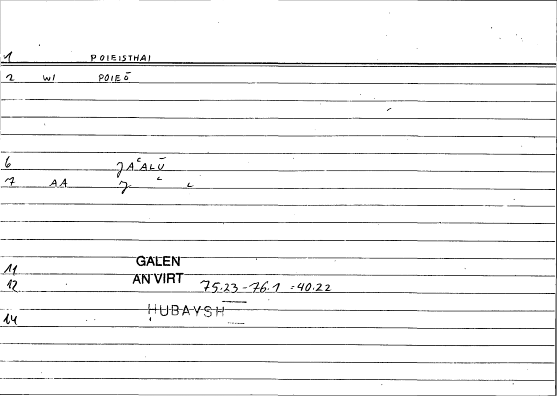 1 POIEISTHAI
2 WI POIEŌ
6 JAʿALŪ
7 AA J ʿ L
11 GALEN
12 AN VIRT 75.23-76.1 =40.22
14 HUBAYSH